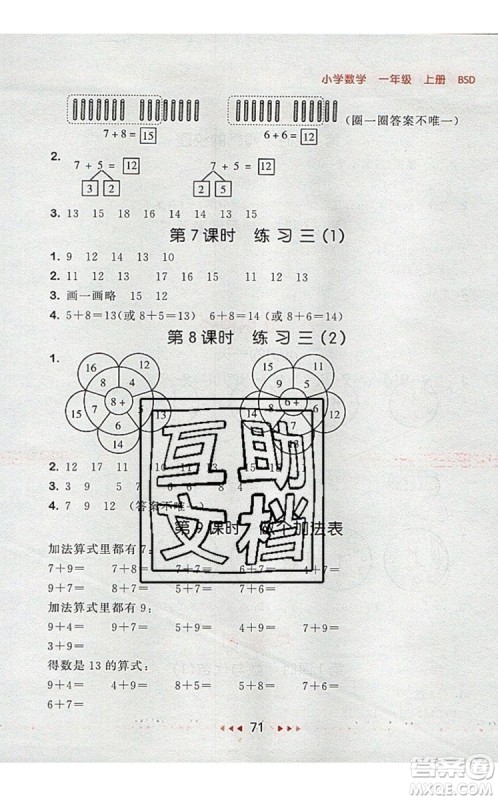 小学数学 一年级 上册 BSD
7+8=15 6+6=12 (圈一圈答案不唯一)
2. 7+5=12 7+5=12
3 2 2 5
3. 13 15 18 16 14 13 14 15
第7课时 练习三(1)
1. 9 12 14 13 10
2. 11 13 12 15 12 11 17 18
3. 画一画略 15 12
4. 5+8=13(或8+5=13) 6+8=14(或8+6=14)
第8课时 练习三(2)
1.
16 12 8 4 15 7 8+ 5 13 6 14
12 15 9 6+ 5 11 8 7 14 13
2. 12 15 11 11
3. 3 9 5
4. 7 9 12 (答案不唯一)
第9课时 做个加法表
加法算式里都有7:
7+9= 7+8= 5+7= 4+7=
9+7= 8+7=
加法算式里都有9:
9+2= 9+3= 5+9= 4+9= 9+6=
9+7= 8+9= 9+9=
得数是13的算式:
9+4= 4+9= 8+5= 5+8= 6+7=
7+6=
71
互助
文档
答案圈
MXQE.COM